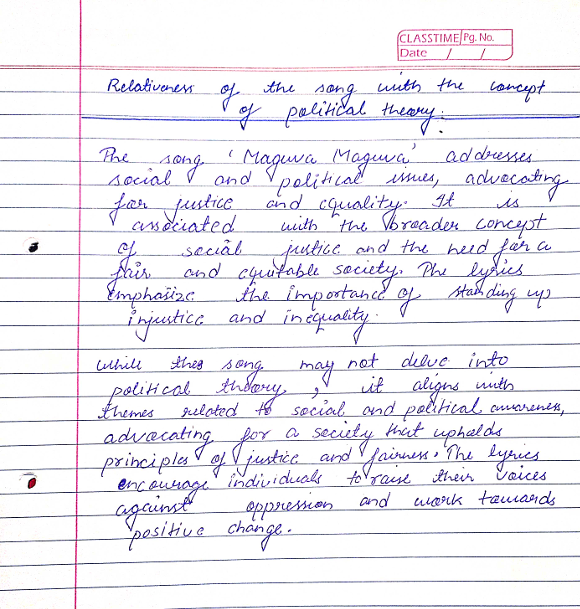 CLASSTIME Pg. No.
Date / /
Relativeness of the song with the concept
of political theory.
The song ' Maguva Maguva' addresses
social and political issues, advocating
for justice and equality. It is
associated with the broader concept
of social justice and the need for a
fair and equitable society. The lyrics
emphasize the importance of standing up
injustice and inequality.
while this song may not delve into
political theory, it aligns with
themes related to social and political awareness,
advocating for a society that upholds
principles of justice and fairness. The lyrics
encourage individuals to raise their voices
against oppression and work towards
positive change.